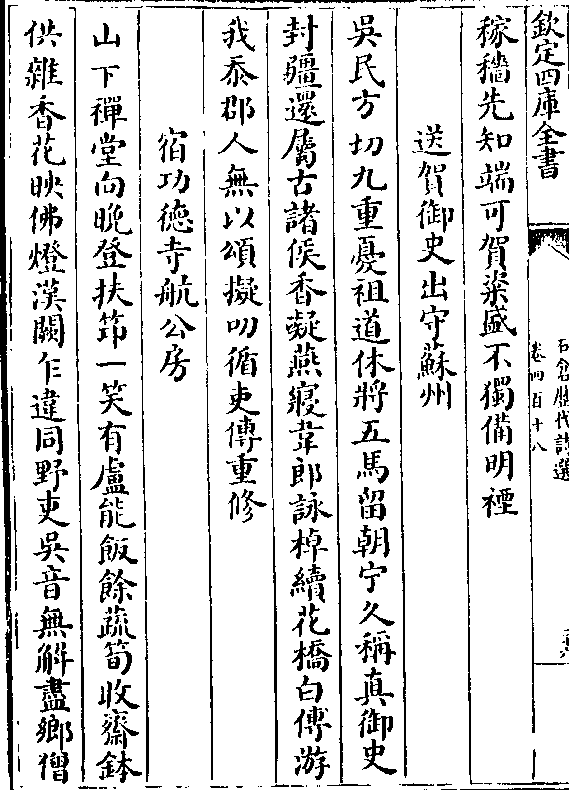 欽定四庫全書
石倉歴代詩選
卷四百十八
稼穡先知端可賀粢盛不獨備明禋
送賀御史出守蘇州
吳民方切九重憂祖道休將五馬留朝宁久稱真御史
封疆還屬古諸侯香凝燕寢韋郎詠棹續花橋白傅游
我忝郡人無以頌擬叨循吏傳重修
宿功德寺航公房
山下禪堂向晩登扶笻一笑有盧能飯餘蔬筍收齋鉢
供雜香花映佛燈漢闕乍違同野吏吳音無解盡鄉僧